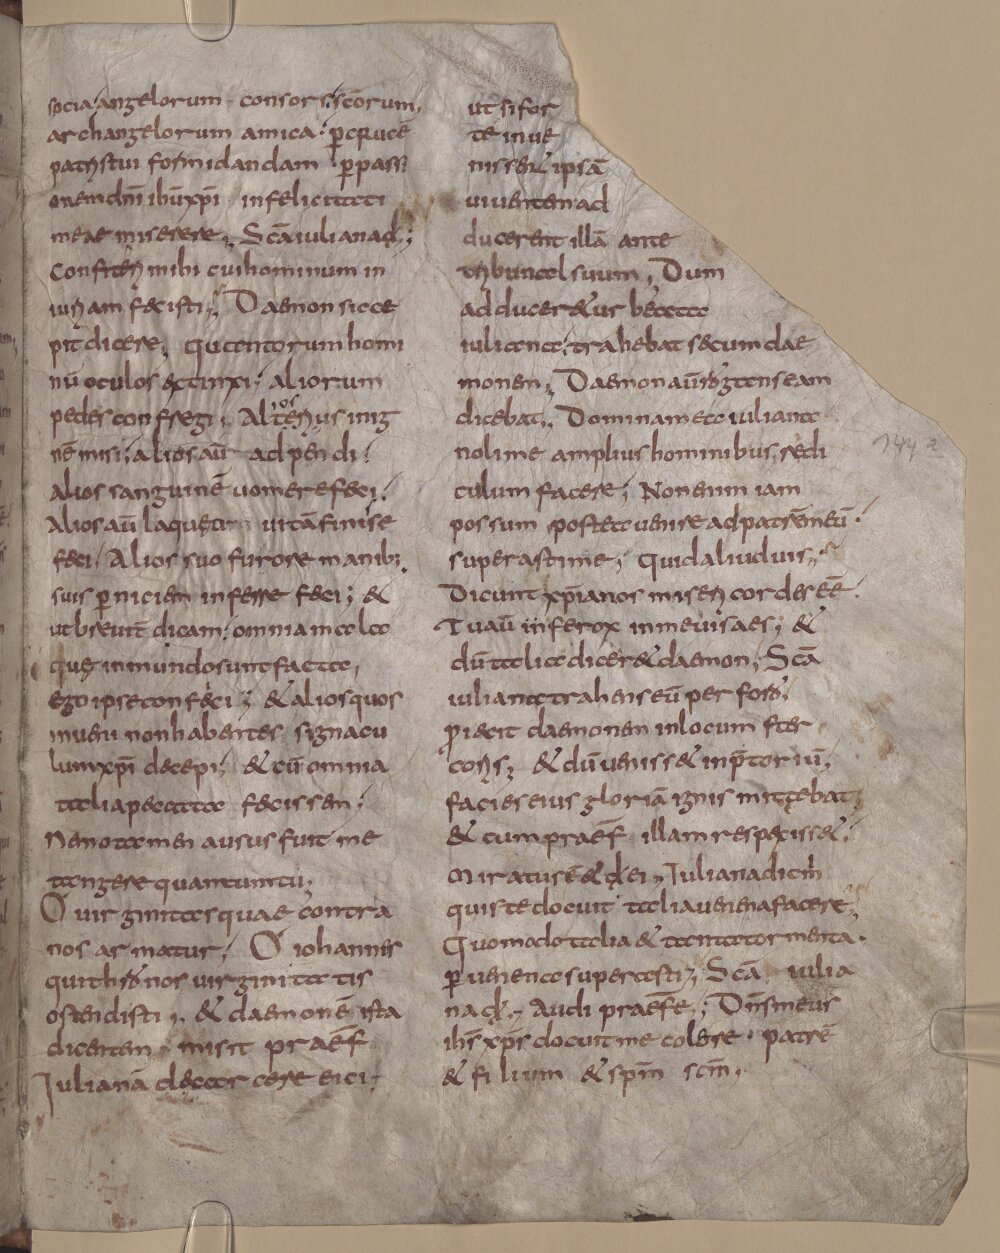 socia angelorum · consors scōrum,
archangelorum amica · p̄ crucē
patris tui formidandam p̄ passi
onem dn̄i ihū xp̄i infelicitati
meae miserere, Scā iuliana dx̄;
Confiteris mihi cui hominum in
iuriam fecisti; Daemon sic coe
pit dicere, quantorum homi
nū oculos extinxi; aliorum
pedes confregi; Alios
nē misi; alios aū adpendi;
Alios sanguinē vomere feci;
Alios aū laqueo vitā finire
feci; Alios suo furore manib;
suis perniciem inferre feci; &
ut breuit̄ dicam; omnia mala
quę in mundo sunt facta,
ego ipse confeci; & alios quos
inueni non habentes signacu
lum xp̄i decepi; & cū omnia
talia peccata fecissem;
Nemo tamen ausus fuit me
tangere quantum tu;
O virginitas quae contra
nos armatur; O iohannis
qui
ostendisti; & daemonē ista
dicentem misit praēf
Iulianā de carcere eici;
ut si for
te inue
niss& ipsā
viuentem ad
ducerent illā ante
tribunal suum, Dum
adducer&ur beata
iuliana; trahebat secum dae
monem; Daemon aū rogans eam
dicebat, Domina mea iuliana
noli me amplius hominibus redi
culum facere; Non enim iam
possum postea uenire ad patrē meū.
superasti me; Quid aliud uis;
Dicunt xp̄ianos misericordes eē.
Tu aū in ferox in me uisa es; &
dū talia dicer& daemon, Scā
iuliana trahens eū per forū,
proiecit daemonem in locum ster
coris; & dū uenisset in p̄toriū,
facies eius gloriā ignis mittebat;
& cum praēf illam respexiss&;
miratus ē & dx̄ ei, Iuliana dic mihi
quis te docuit talia uenena facere;
Quomodo talia & tanta tormenta.
p̄ uenena superasti; Scā iulia
na dx̄, Audi praefe; Dn̄s meus
ihs̄ xp̄s docuit me colere · patrē
& filium & spm̄ scm̄,
144 a